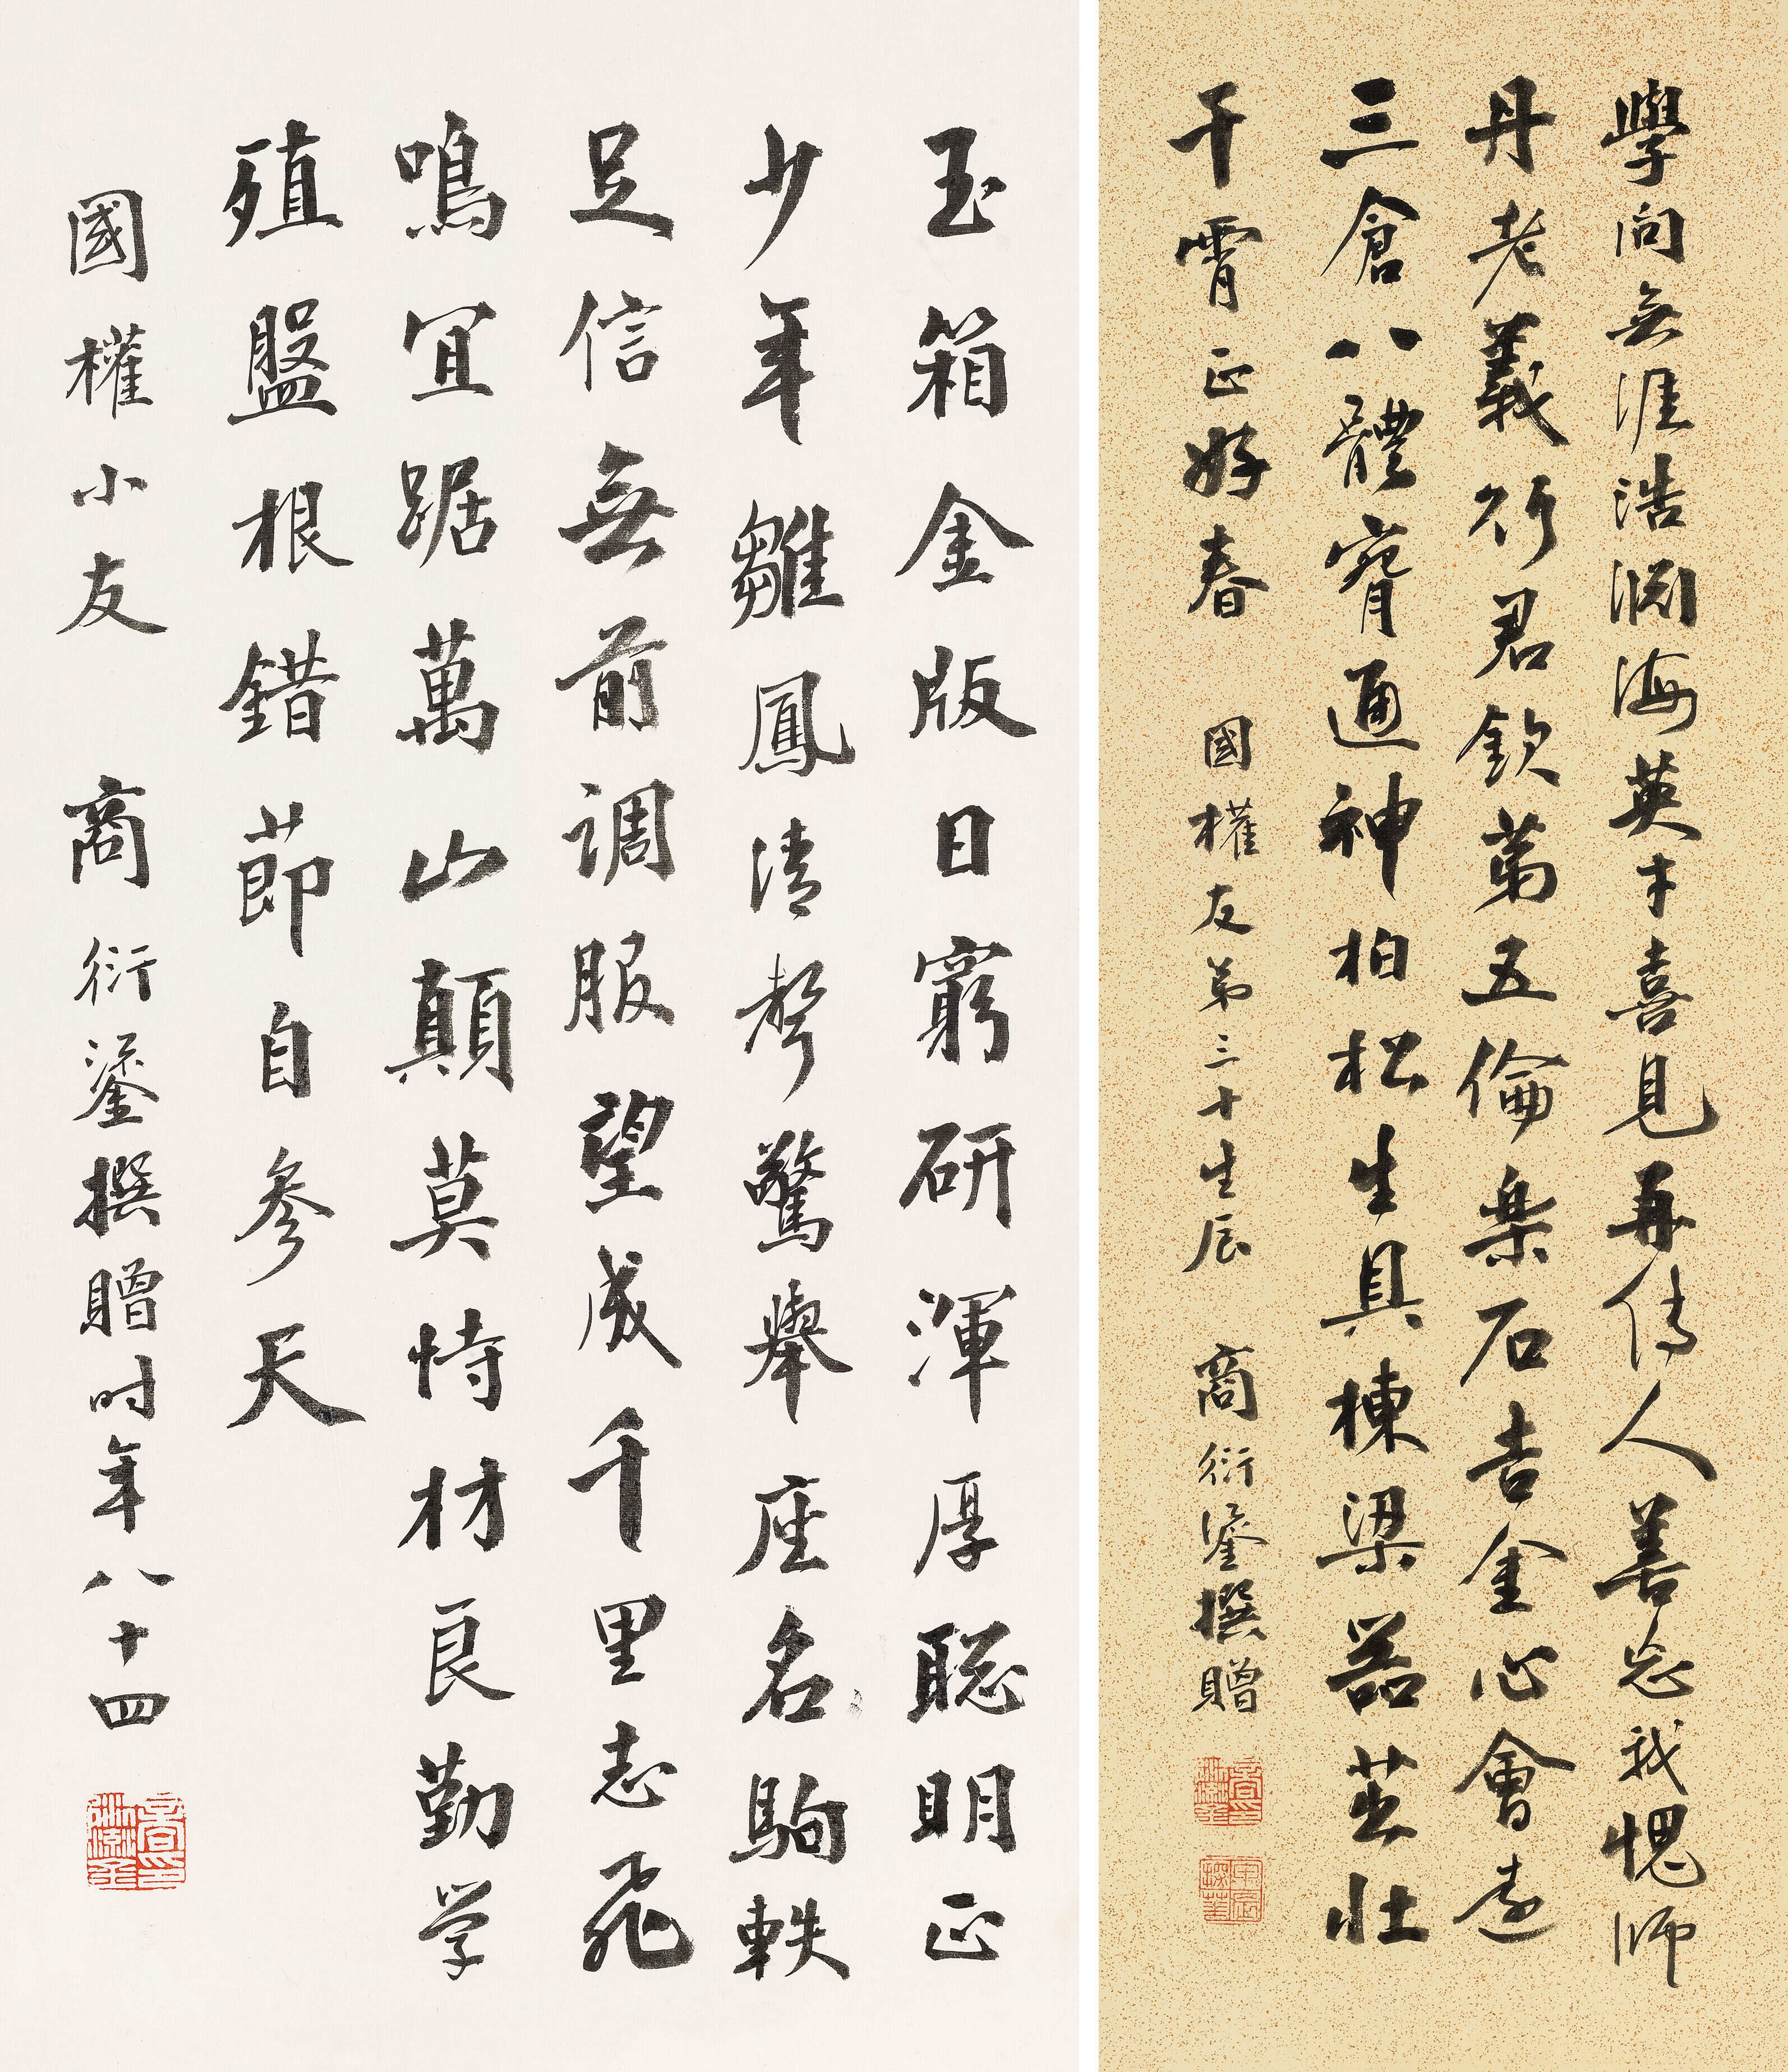 學問無涯浩渊海英才喜見再傳人善忘我愧師
丹老義行君欽第五倫樂石吉金心會遠
三倉八體窅通神柏松生具棟梁器茁壯
干霄正好春 國權友弟三十生辰 商衍鎏撰贈
玉箱金版日窮研渾厚聰明正
少年雛鳳清聲驚舉座名駒軼
足信無前調服望成千里志飛
鳴宜踞萬山顛莫恃材良勤学
殖盤根錯節自參天
國權小友 商衍鎏撰贈时年八十四